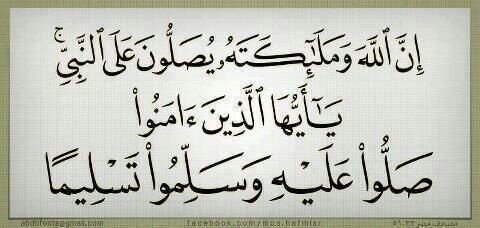 إِنَّ ٱللَّهَ وَمَلَٰٓئِكَتَهُۥ يُصَلُّونَ عَلَى ٱلنَّبِيِّۚ
يَٰٓأَيُّهَا ٱلَّذِينَ ءَامَنُوا۟
صَلُّوا۟ عَلَيْهِ وَسَلِّمُوا۟ تَسْلِيمًا
abdofonts@gmail.com facebook.com/mos.hafmisr